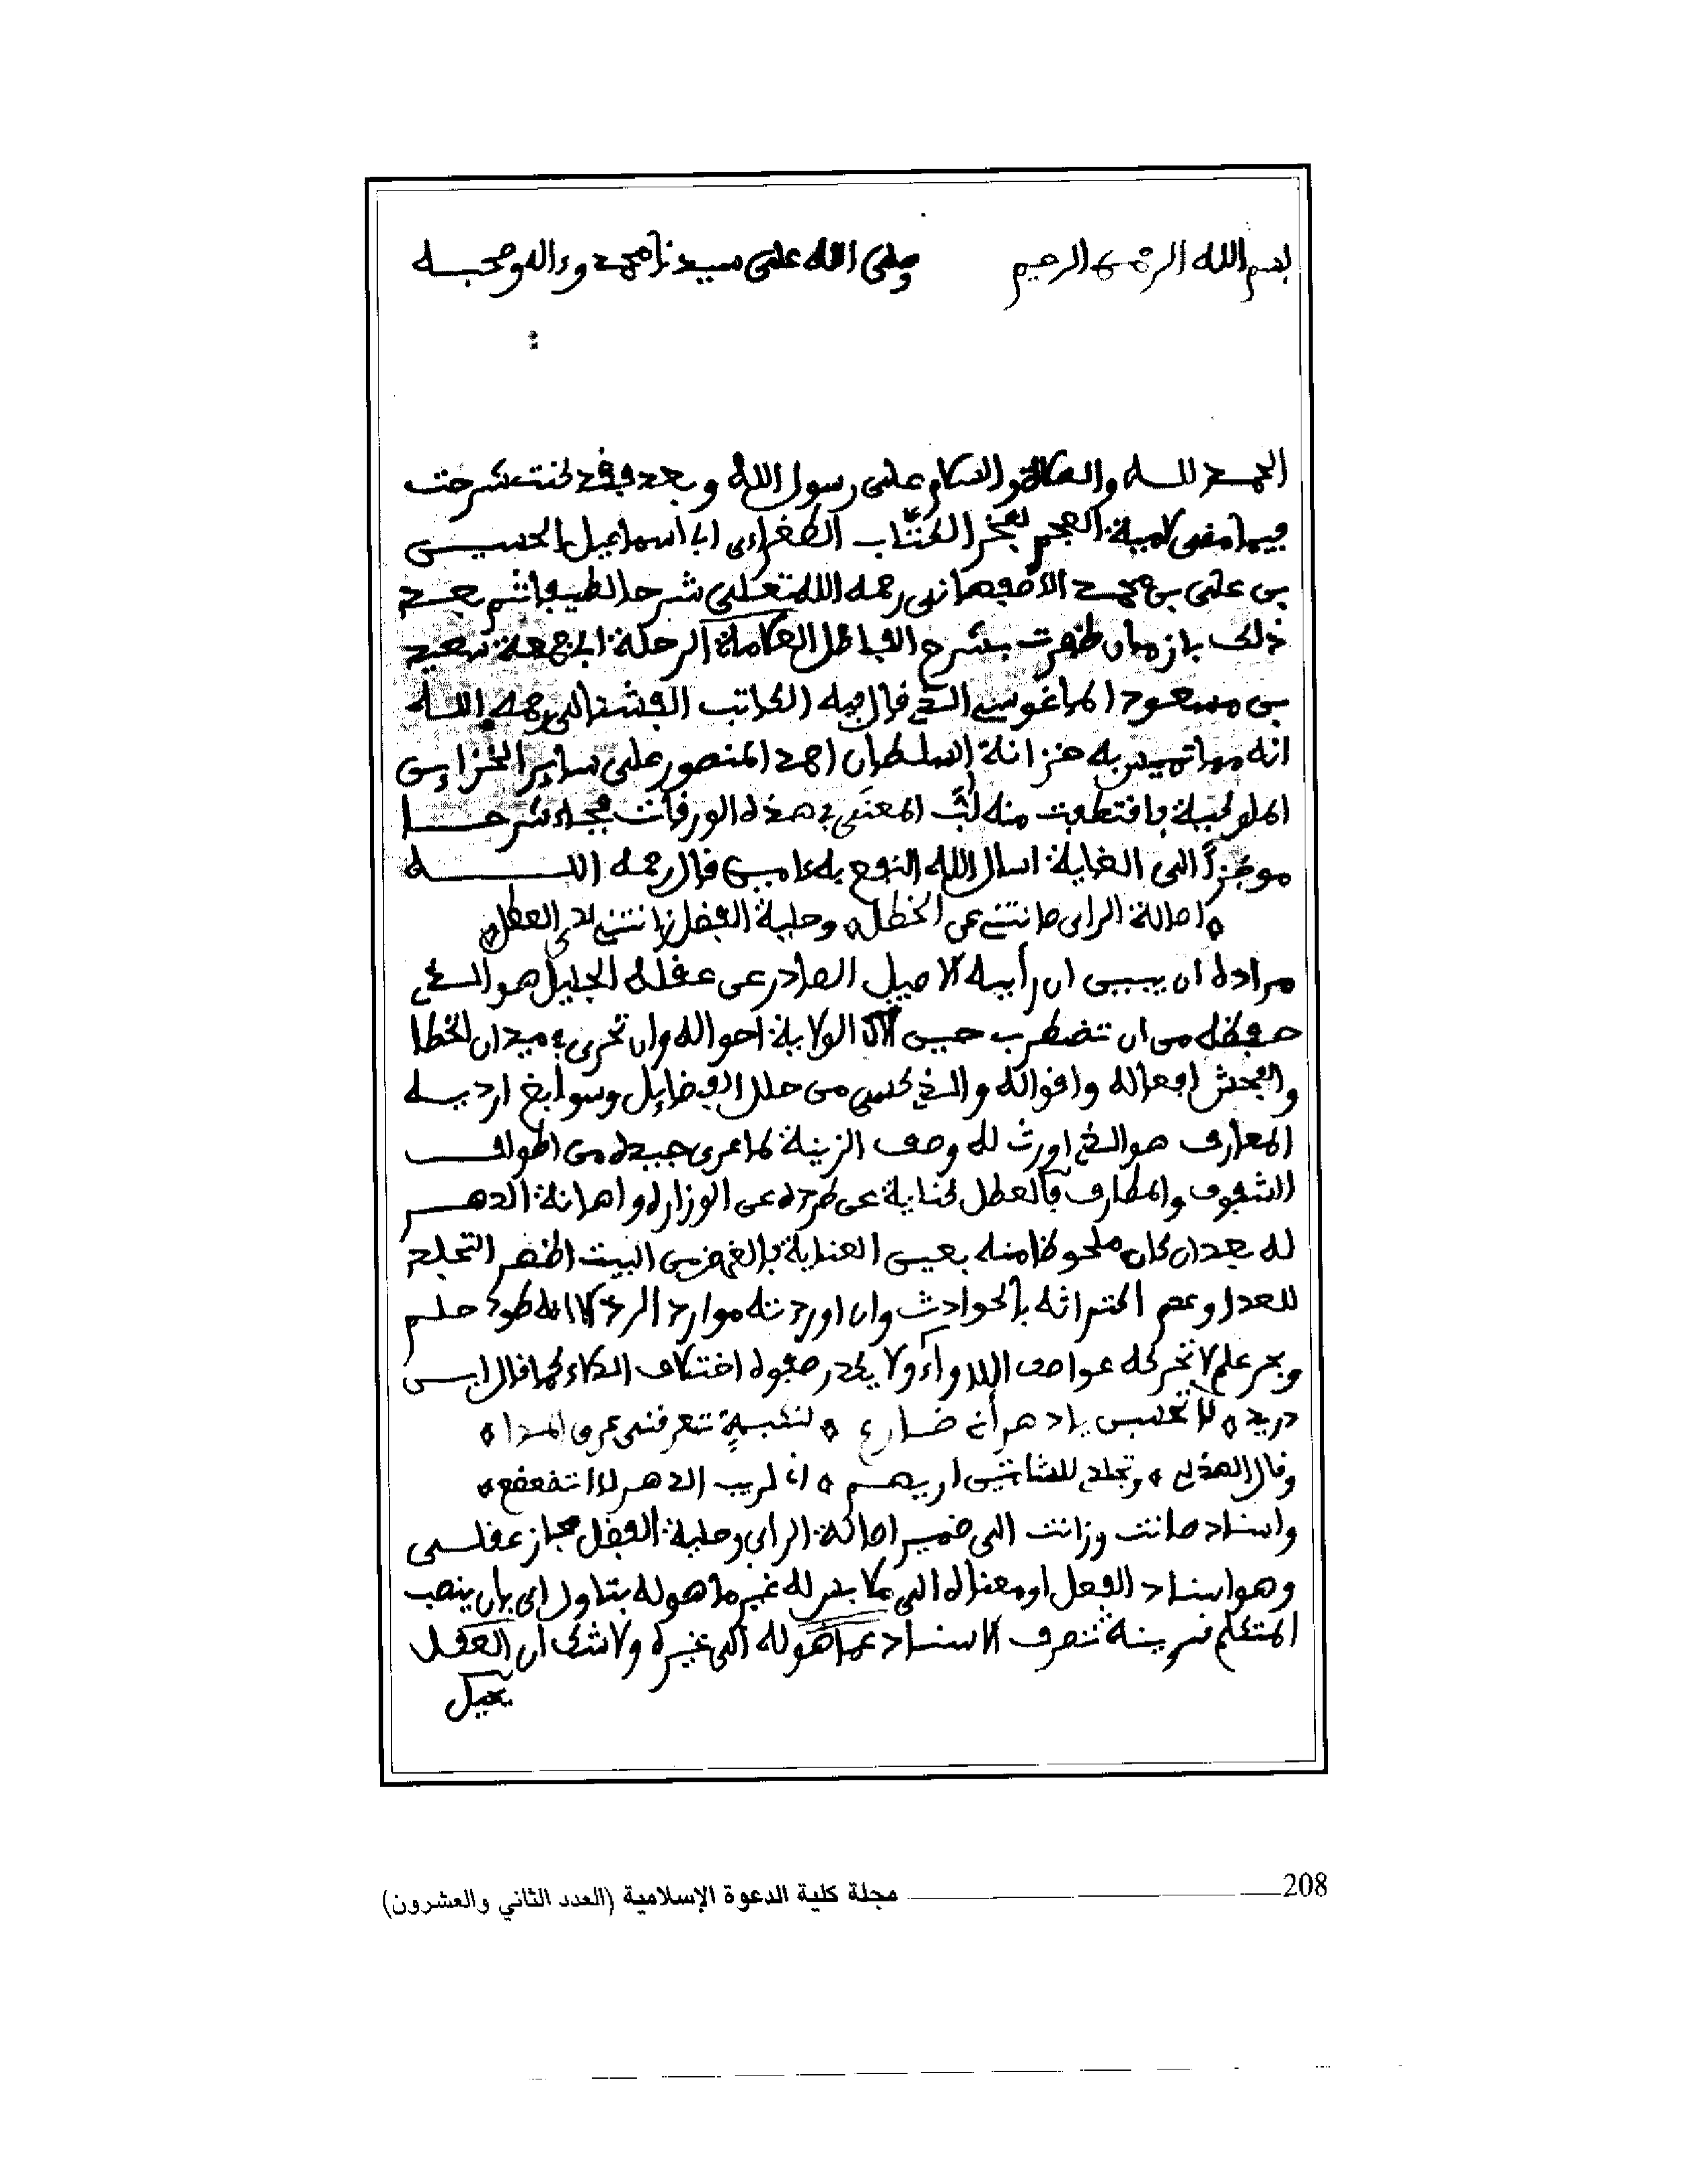 بسم الله الرحمن الرحيم وصلى الله على سيدنا محمد وءاله وصحبه
الحمد لله والصلاة والسلام على رسول الله وبعد فقد كنت شرحت
فيما مضى لامية العجم لفخر الكتاب الطغراءى ابا اسماعيل الحسين
بن على بن محمد الاصفهانى رحمه الله تعلى شرحا لطيفا ثم بعد
ذلك بازمان ظفرت بشرح الفاضل العلامة الرحلة ابى جمعة سعيد
بن مسعود الماغوسى الذى قال فيه الكاتب الفشتالى رحمه الله
انه مما تميس به خزانة السلطان احمد المنصور على ساير الخزاين
الملوكية فاقتطفت منه لب المعنى فى هذه الورقات فجاء شرحا
موجزا الى الغاية اسال الله النفع به ءامين قال رحمه الله
اصالة الراى صانتنى عن الخطل وحلية الفضل زانتنى لدى العطل
مراده ان يبين ان رأيه الاصيل الصادر عن عقله الجليل هو الذى
حفظه من ان تضطرب حين الولاية احواله وان تجرى فى ميدان الخطا
والفحش افعاله واقواله والذى كسى من حلل الفضايل وسوابغ اردية
المعارف هو الذى اورث له وصف الزينة لما عرى جيده من اطواف
الشفوف والمطارف فالعطل كناية عن طرده عن الوزارة واهانة الدهر
له بعد ان كان ملحوظا منه بعين العناية فالغرض من البيت اظهار التجلد
للعدا وعدم اكتراثه بالحوادث وان اوردته موارد الردى لانه طود حلم
وبحر علم لا تحركه عواصف اللاواء ولا يكدر صفوه اختلاف الدلاء كما قال ابن
دريد لا تحسبن يا دهر أنى ضارع لنكبة تعرقنى عرق المدا
وقال الهذلى وتجلدى للشامتين اريهم انى لريب الدهر لا اتضعضع
واسناد صانت وزانت الى ضمير اصالة الراى وحلية الفضل مجاز عقلى
وهو اسناد الفعل او معناه الى ملابس له غير ما هو له بتاول اى بان ينصب
المتكلم قرينة تصرف الاسناد عما هو له الى غيره ولا شك ان العقل
208 مجلة كلية الدعوة الإسلامية (العدد الثاني والعشرون)